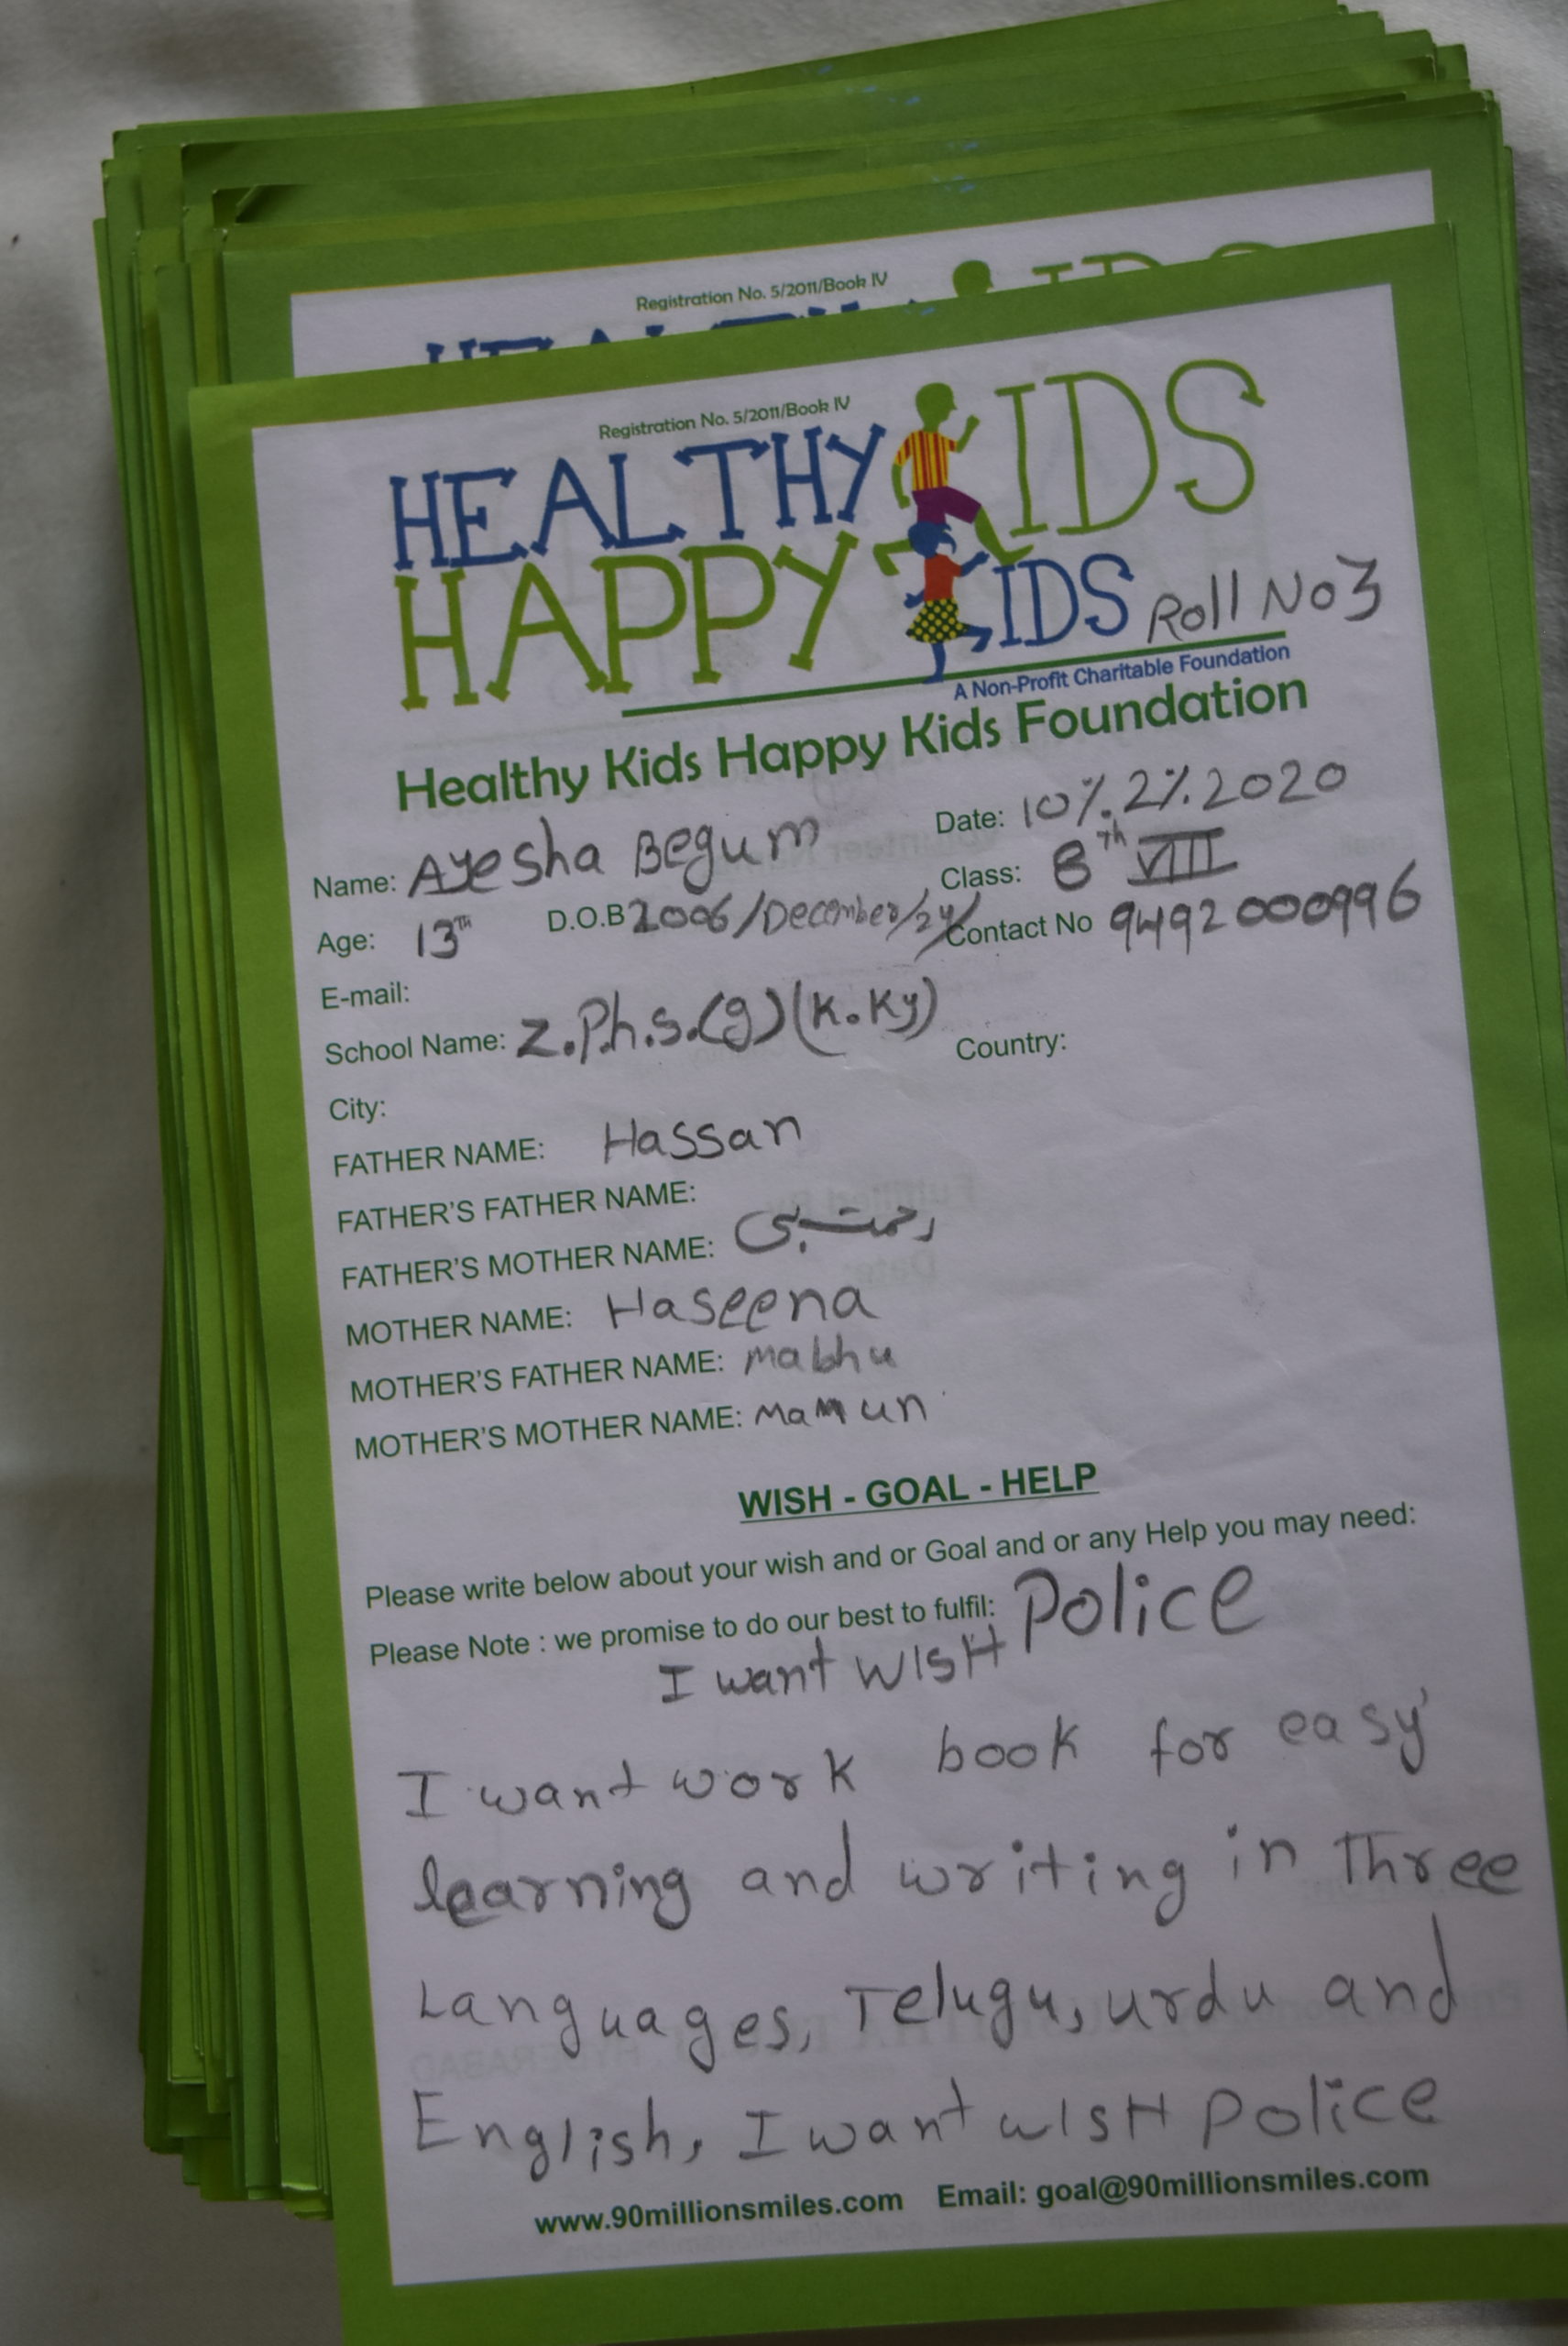 Registration No. 5/2011/Book IV
Registration No. 5/2011/Book IV
HEALTHY KIDS
HAPPY KIDS Roll No 3
A Non-Profit Charitable Foundation
Healthy Kids Happy Kids Foundation
Name: Ayesha Begum Date: 10%.2%.2020
Class: 8th VIII
Age: 13TH D.O.B 2006/December/24/ Contact No 9492000996
E-mail:
School Name: Z.P.h.s.(g)(K.Ky) Country:
City:
FATHER NAME: Hassan
FATHER'S FATHER NAME:
FATHER'S MOTHER NAME: رحمت بی
MOTHER NAME: Haseena
MOTHER'S FATHER NAME: Mabhu
MOTHER'S MOTHER NAME: Mamun
WISH - GOAL - HELP
Please write below about your wish and or Goal and or any Help you may need:
Please Note : we promise to do our best to fulfil:
I want WISH Police
I want work book for easy
learning and writing in Three
Languages, Telugu, urdu and
English, I want wISH Police
www.90millionsmiles.com Email: goal@90millionsmiles.com